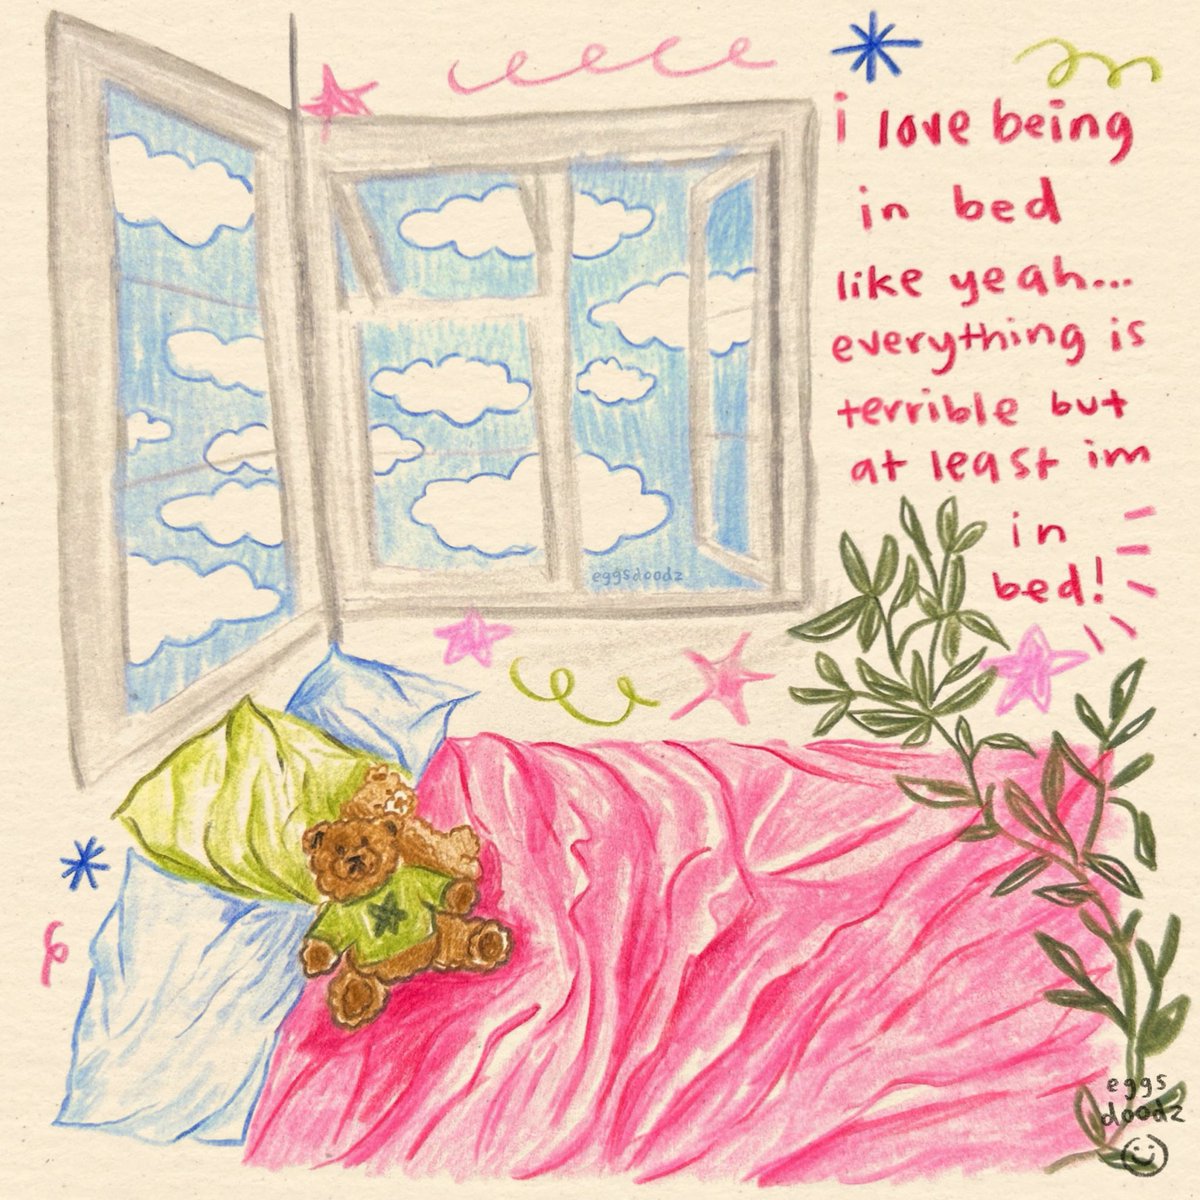 i love being
in bed
like yeah...
everything is
terrible but
at least im
in
bed!
eggsdoodz
eggs
doodz